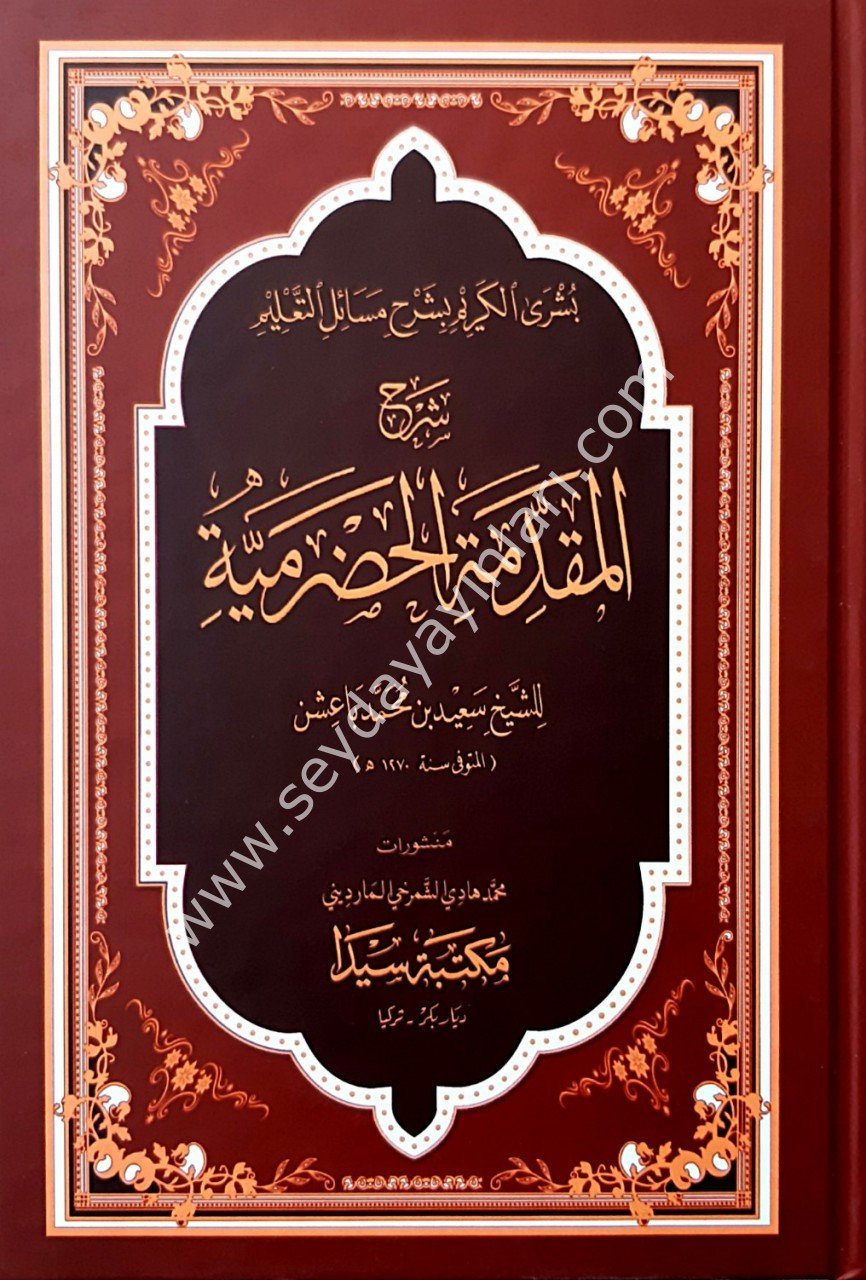 بُشْرَى الكَرِيْمِ بِشَرْحِ مَسَائِلِ التَّعْلِيْمِ
شَرْح
المُقَدِّمَةِ الحَضْرَمِيَّةِ
لِلشَّيْخِ سَعِيْد بن مُحَمَّد بَاعِشِن
( المتوفى سنة ١٢٧٠ ه )
مَنشورات
محمَّد هادي الشمرخي المارديني
مَكتبَة سَيْدَا
ديار بكر - تركيا
www.seydayayinlari.com